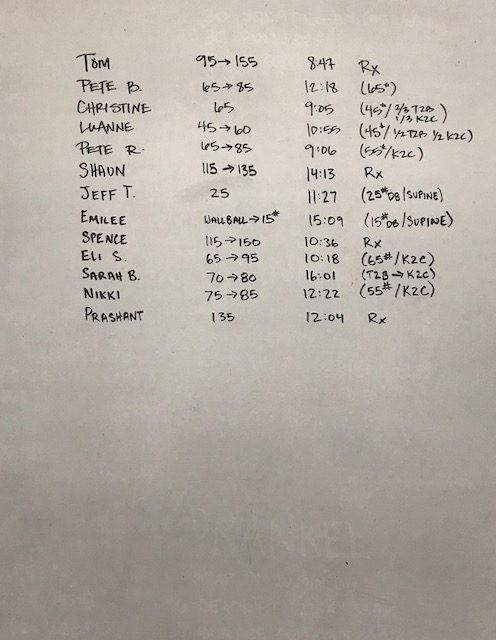 TOM 95→155 8:47 Rx
PETE B. 65→85 12:18 (65#)
CHRISTINE 65 9:05 (45#/ 2/3 T2B 1/3 K2C)
LUANNE 45→60 10:55 (45#/ 1/2 T2B 1/2 K2C)
PETE R. 65→85 9:06 (55#/K2C)
SHAUN 115→135 14:13 Rx
JEFF T. 25 11:27 (25# DB/SUPINE)
EMILEE WALLBALL→15# 15:09 (15# DB/SUPINE)
SPENCE 115→150 10:36 Rx
ELI S. 65→95 10:18 (65#/K2C)
SARAH B. 70→80 16:01 (T2B→K2C)
NIKKI 75→85 12:22 (55#/K2C)
PRASHANT 135 12:04 Rx